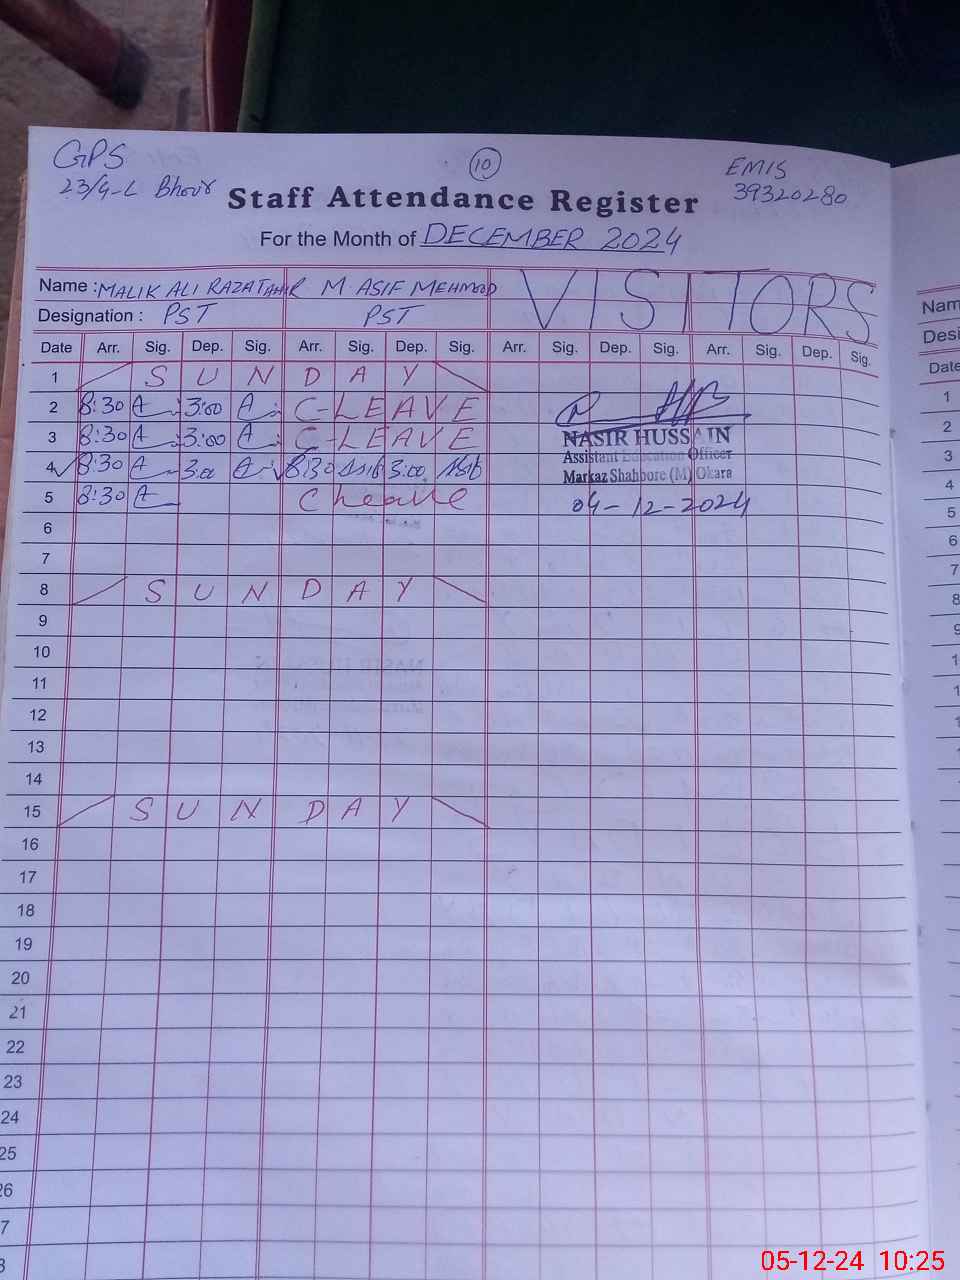 GPS
23/4-L Bhour
10
EMIS
39320280
Staff Attendance Register
For the Month of DECEMBER 2024
Name : MALIK ALI RAZA TAHIR M ASIF MEHMOOD VISITORS
Designation : PST PST
Date Arr. Sig. Dep. Sig. Arr. Sig. Dep. Sig. Arr. Sig. Dep. Sig. Arr. Sig. Dep. Sig.
1 SUNDAY
2 8:30 3:00 C-LEAVE
3 8:30 3:00 C-LEAVE
NASIR HUSSAIN
Assistant Education Officer
4 8:30 3:00 8:30 Asif 3:00 Asif
Markaz Shahbore (M) Okara
5 8:30 C leave
04-12-2024
6
7
8 SUNDAY
9
10
11
12
13
14
15 SUNDAY
16
17
18
19
20
21
22
23
24
25
26
7
8
Nam
Desi
Date
1
2
3
4
5
6
7
8
9
05-12-24 10:25